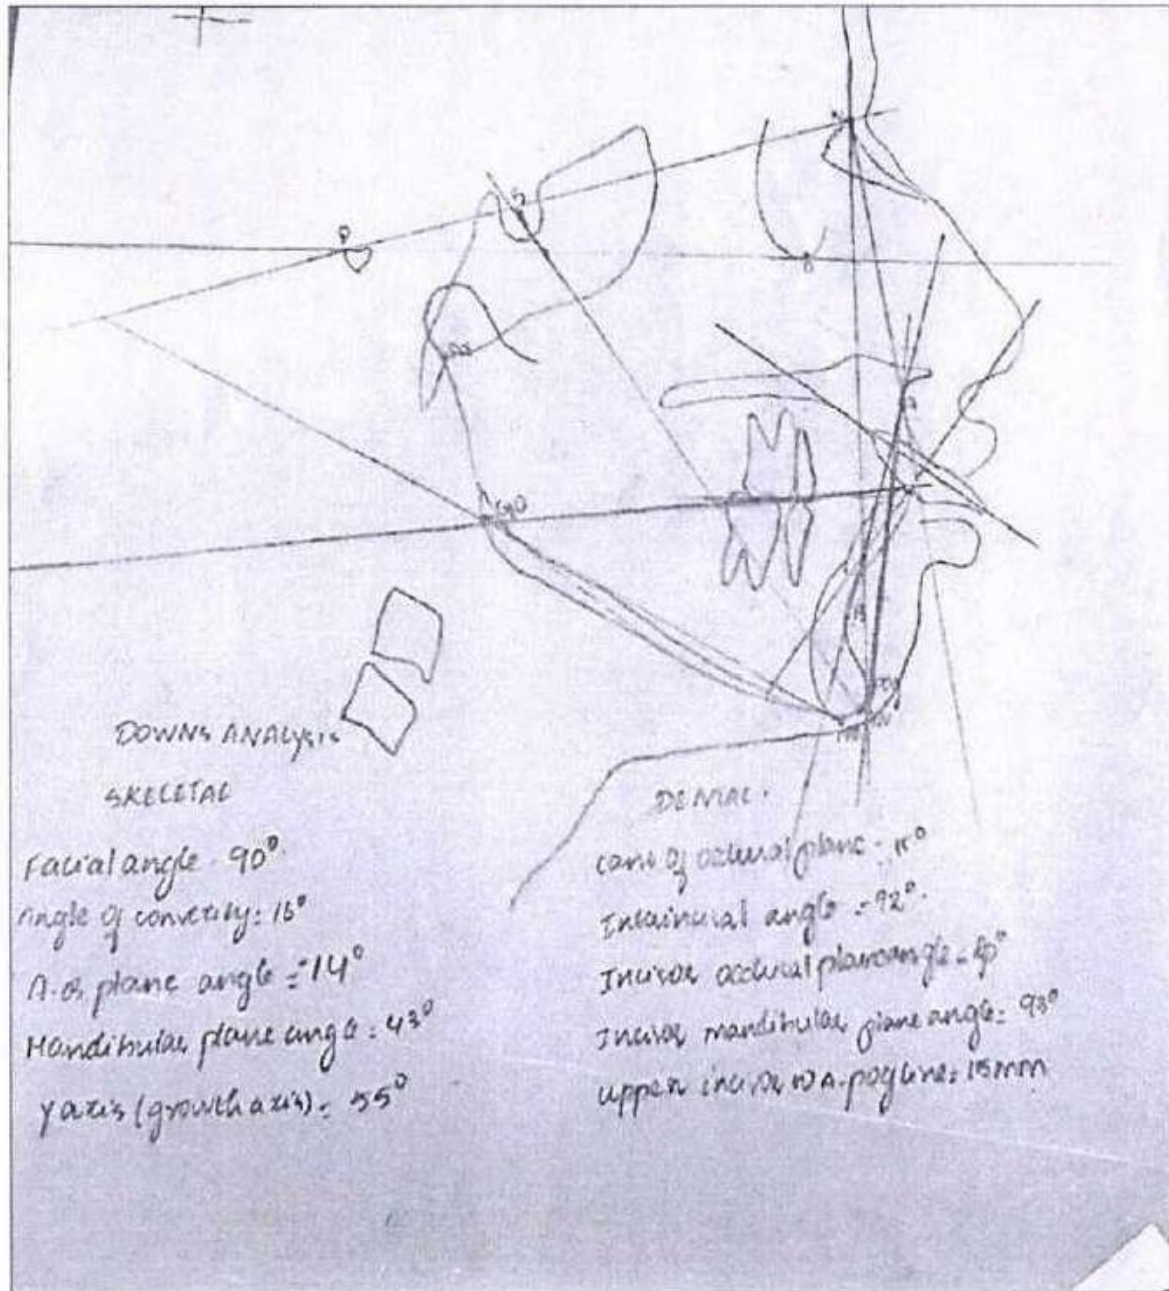 P
S
GO
DOWNS ANALYSIS
SKELETAL
Facial angle - 90°
Angle of convexity = 15°
A-B plane angle = -14°
Mandibular plane angle = 43°
Y axis (growth axis) = 55°
DENTAL.
cant of occlusal plane =
Interincisal angle = 92°
Incisor occlusal plane angle =
Incisor mandibular plane angle = 93°
Upper incisor to A-pog line = 15mm